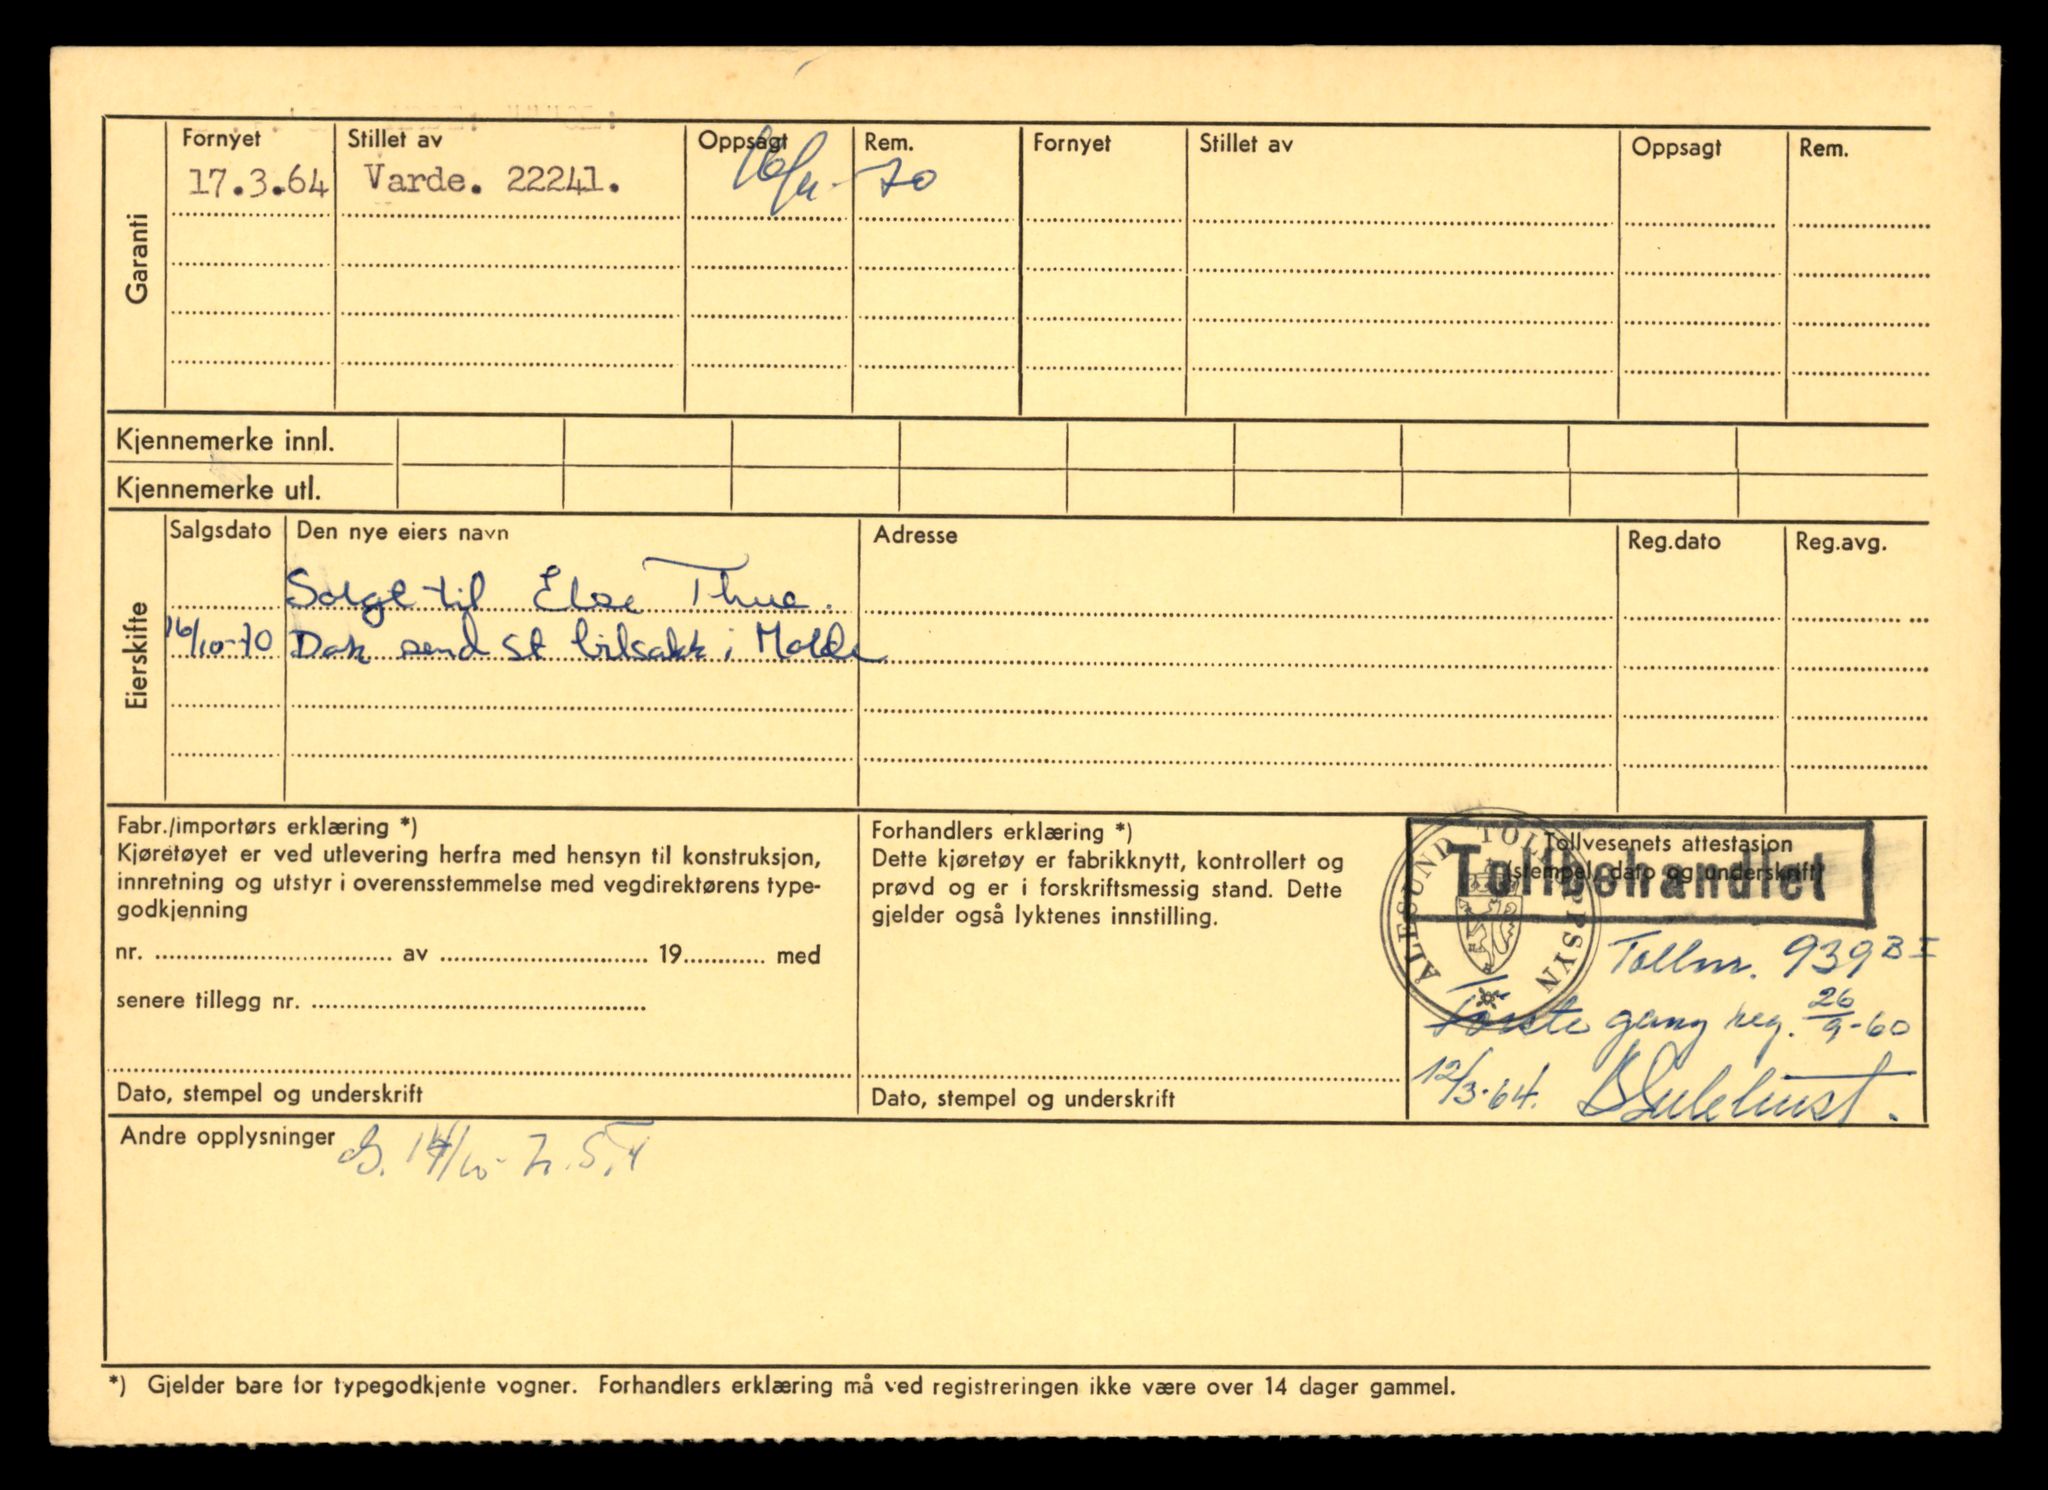 Garanti
Fornyet Stillet av Oppsagt Rem. Fornyet Stillet av Oppsagt Rem.
17.3.64 Varde. 22241. 70
Kjennemerke innl.
Kjennemerke utl.
Eierskifte
Salgsdato Den nye eiers navn Adresse Reg.dato Reg.avg.
Solgt til Else Thue.
16/10-70 Dok send st bilsakk i Molde
Fabr./importørs erklæring *)
Kjøretøyet er ved utlevering herfra med hensyn til konstruksjon,
innretning og utstyr i overensstemmelse med vegdirektørens type-
godkjenning
nr. av 19 med
senere tillegg nr.
Dato, stempel og underskrift
Forhandlers erklæring *)
Dette kjøretøy er fabrikknytt, kontrollert og
prøvd og er i forskriftsmessig stand. Dette
gjelder også lyktenes innstilling.
Dato, stempel og underskrift
Tollvesenets attestasjon
(stempel, dato og underskrift)
Tollbehandlet
ÅLESUND TOLLOPPSYN
Tollnr. 939 B I
Første gang reg. 26/9-60
12/3-64.
Andre opplysninger
*) Gjelder bare for typegodkjente vogner. Forhandlers erklæring må ved registreringen ikke være over 14 dager gammel.